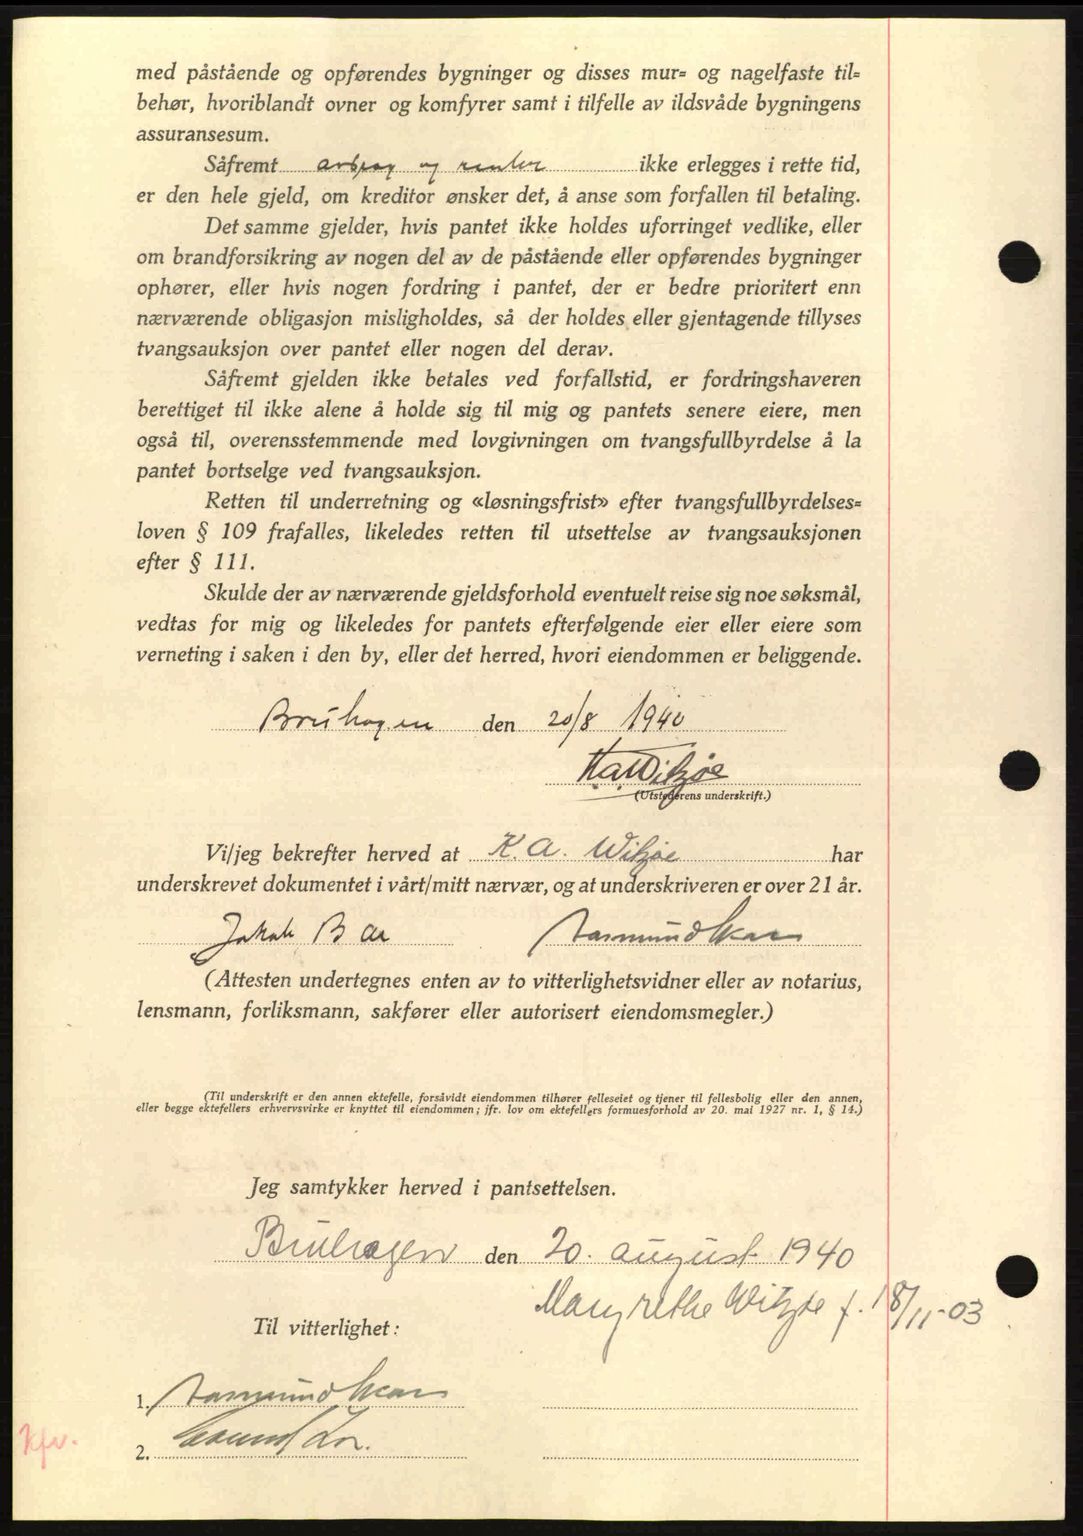 med påstående og opførendes bygninger og disses mur= og nagelfaste til=
behør, hvoriblandt ovner og komfyrer samt i tilfelle av ildsvåde bygningens
assuransesum.
Såfremt avdrag og renter ikke erlegges i rette tid,
er den hele gjeld, om kreditor ønsker det, å anse som forfallen til betaling.
Det samme gjelder, hvis pantet ikke holdes uforringet vedlike, eller
om brandforsikring av nogen del av de påstående eller opførendes bygninger
ophører, eller hvis nogen fordring i pantet, der er bedre prioritert enn
nærværende obligasjon misligholdes, så der holdes eller gjentagende tillyses
tvangsauksjon over pantet eller nogen del derav.
Såfremt gjelden ikke betales ved forfallstid, er fordringshaveren
berettiget til ikke alene å holde sig til mig og pantets senere eiere, men
også til, overensstemmende med lovgivningen om tvangsfullbyrdelse å la
pantet bortselge ved tvangsauksjon.
Retten til underretning og «løsningsfrist» efter tvangsfullbyrdelses=
loven § 109 frafalles, likeledes retten til utsettelse av tvangsauksjonen
efter § 111.
Skulde der av nærværende gjeldsforhold eventuelt reise sig noe søksmål,
vedtas for mig og likeledes for pantets efterfølgende eier eller eiere som
verneting i saken i den by, eller det herred, hvori eiendommen er beliggende.
Bruhagen den 20/8 1940
K.A. Witzøe
(Utstederens underskrift.)
Vi/jeg bekrefter herved at K. A. Witzøe har
underskrevet dokumentet i vårt/mitt nærvær, og at underskriveren er over 21 år.
Jakob B Rasmund
(Attesten undertegnes enten av to vitterlighetsvidner eller av notarius,
lensmann, forliksmann, sakfører eller autorisert eiendomsmegler.)
(Til underskrift er den annen ektefelle, forsåvidt eiendommen tilhører felleseiet og tjener til fellesbolig eller den annen,
eller begge ektefellers erhvervsvirke er knyttet til eiendommen; jfr. lov om ektefellers formuesforhold av 20. mai 1927 nr. 1, § 14.)
Jeg samtykker herved i pantsettelsen.
Bruhagen den 20. august 1940
Margrethe Witzøe f. 18/11-03
Til vitterlighet:
1. Rasmund
2.
Kfv.